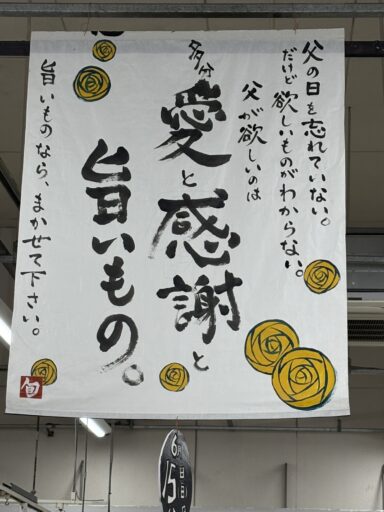 父の日を忘れていない。
だけど欲しいものがわからない。
父が欲しいのは
多分
愛と感謝と
旨いもの。
旨いものなら、まかせて下さい。
旬
6月
15